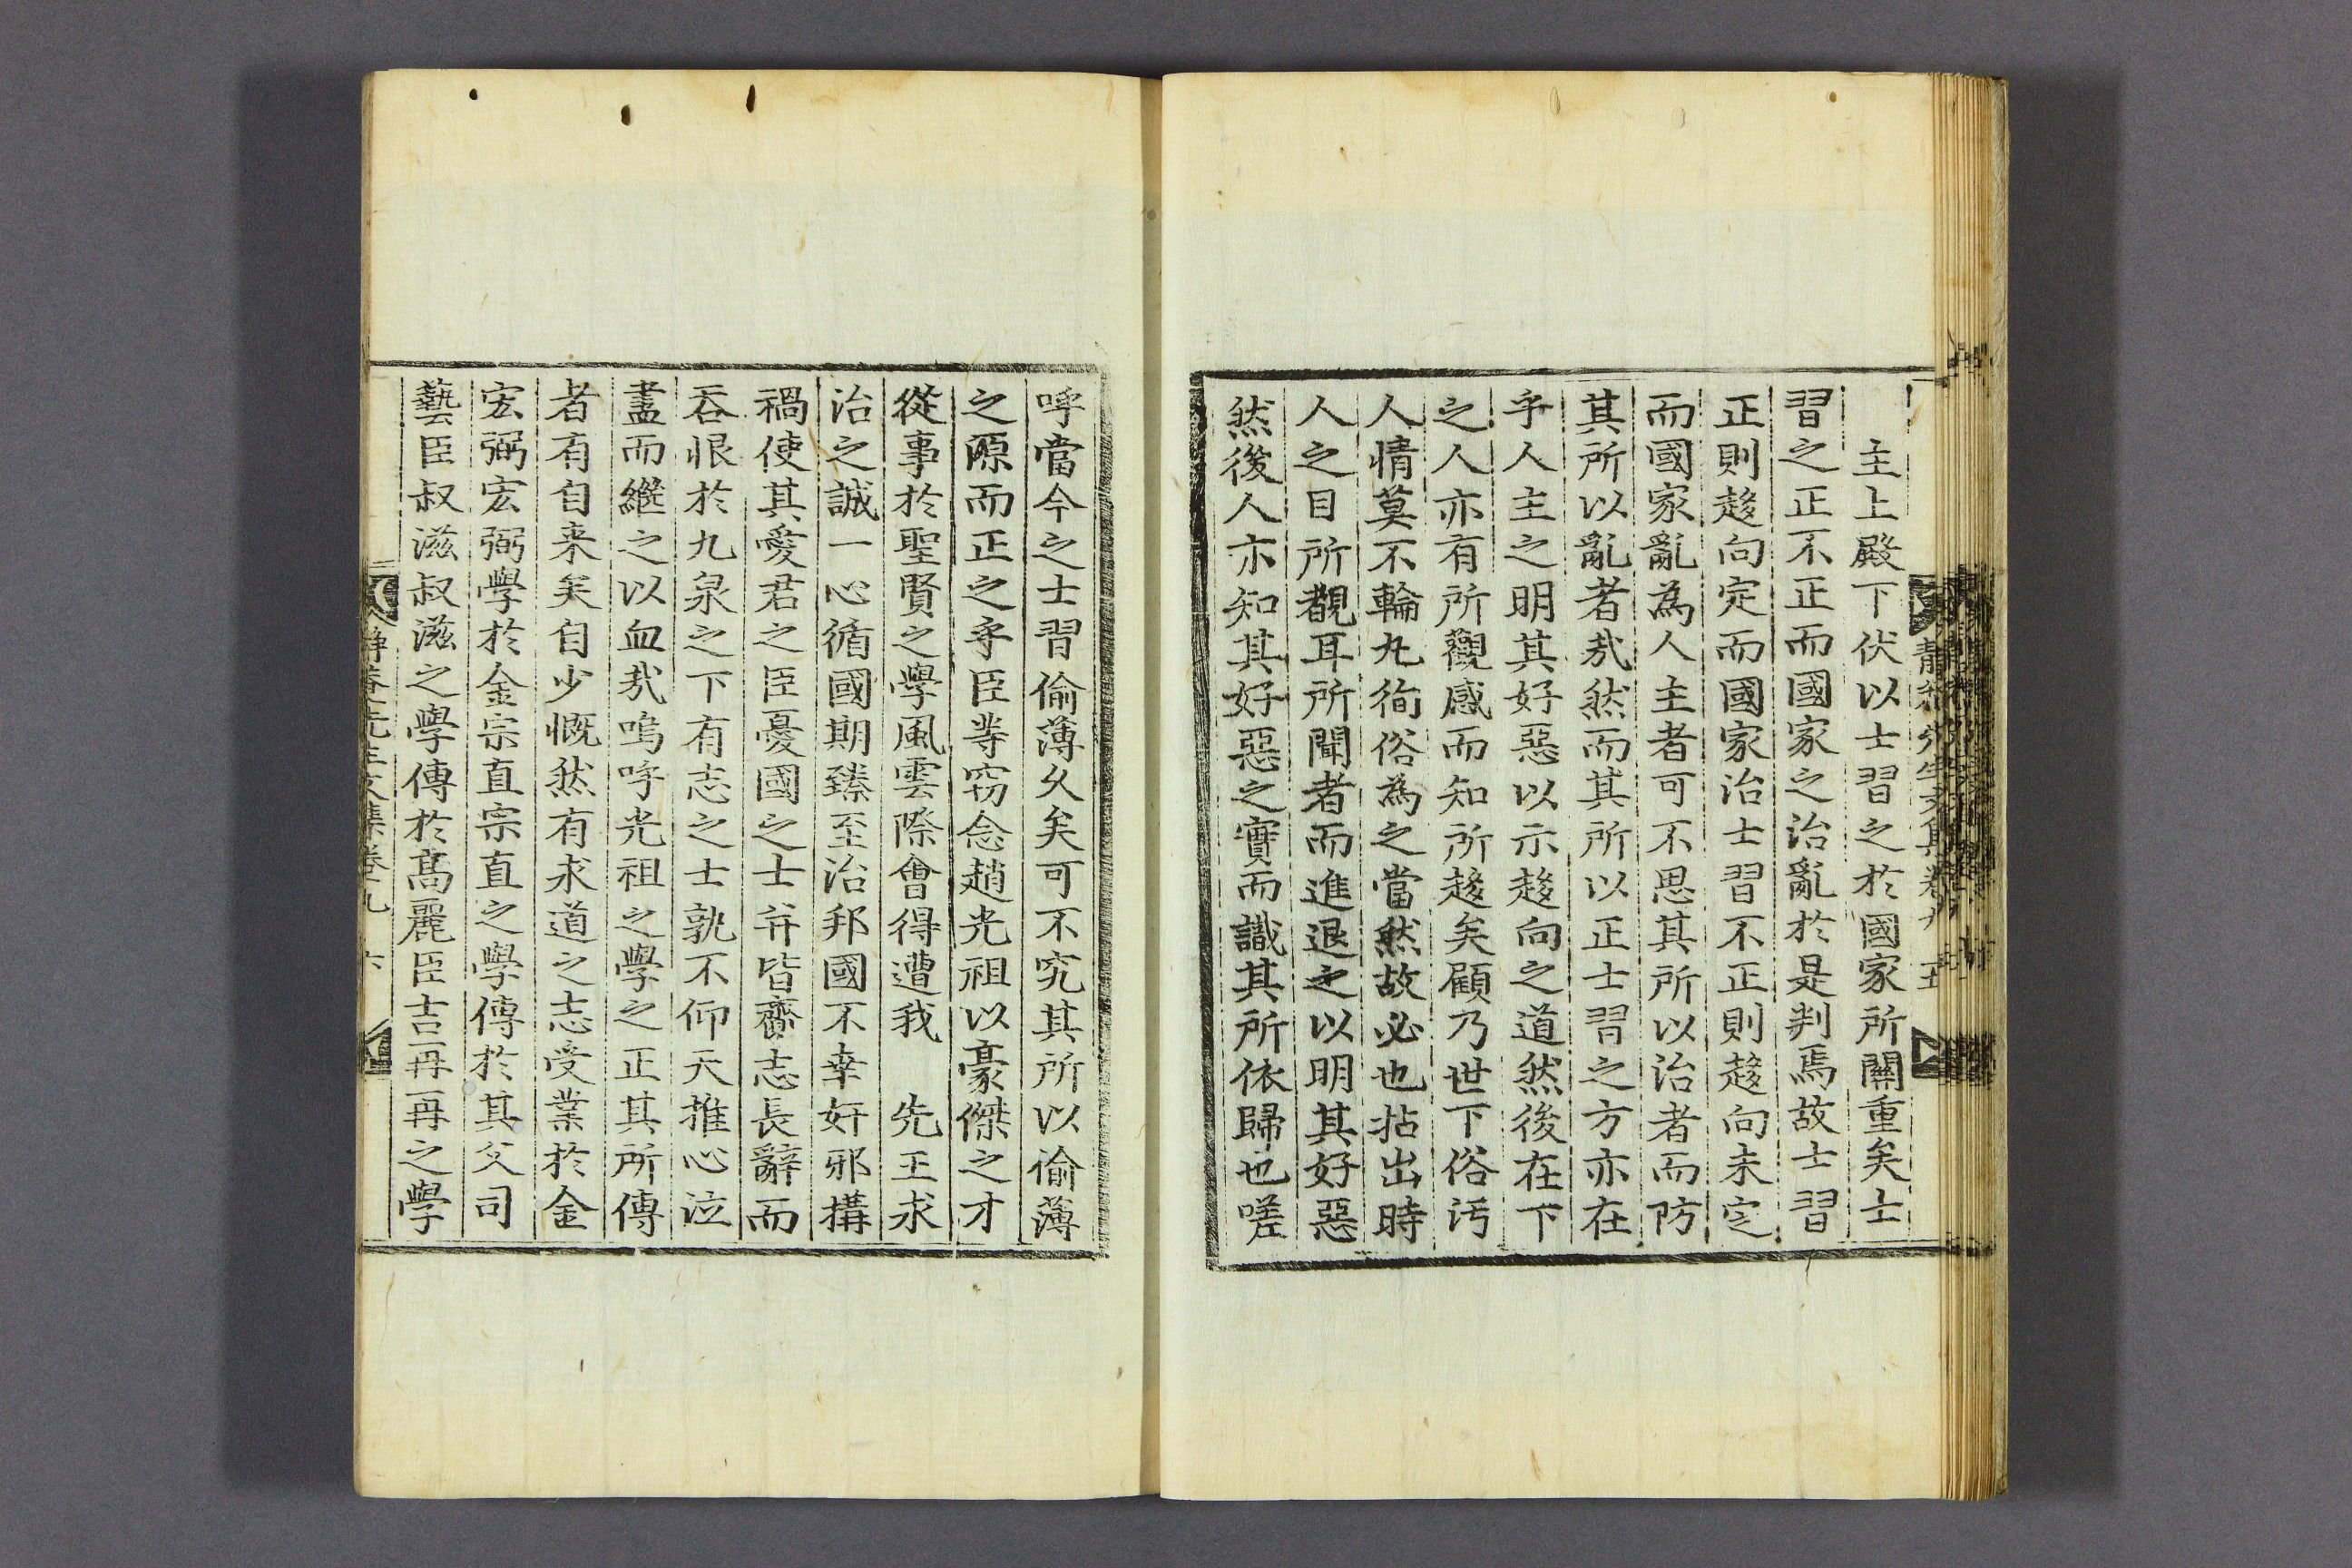 主上殿下伏以士習之於國家所關重矣士
習之正不正而國家之治亂於是判焉故士習
正則趍向定而國家治士習不正則趍向未定
而國家亂為人主者可不思其所以治者而防
其所以亂者㢤然而其所以正士習之方亦在
乎人主之明其好惡以示趍向之道然後在下
之人亦有所觀感而知所趍矣顧乃世下俗汚
人情莫不輪丸徇俗為之當然故必也拈出時
人之目所覩耳所聞者而進退之以明其好惡
然後人亦知其好惡之實而識其所依歸也嗟
呼當今之士習偷薄久矣可不究其所以偷薄
之源而正之乎臣等窃念趙光祖以豪傑之才
從事於聖賢之學風雲際會得遭我 先王求
治之誠一心循國期臻至治邦國不幸奸邪搆
禍使其愛君之臣憂國之士并皆齎志長辭而
吞恨於九泉之下有志之士孰不仰天推心泣
盡而繼之以血㢤嗚呼光祖之學之正其所傳
者有自来矣自少慨然有求道之志受業於金
宏弼宏弼學於金宗直宗直之學傳於其父司
藝臣叔滋叔滋之學傳於髙麗臣吉再再之學
靜菴先生文集卷九 六